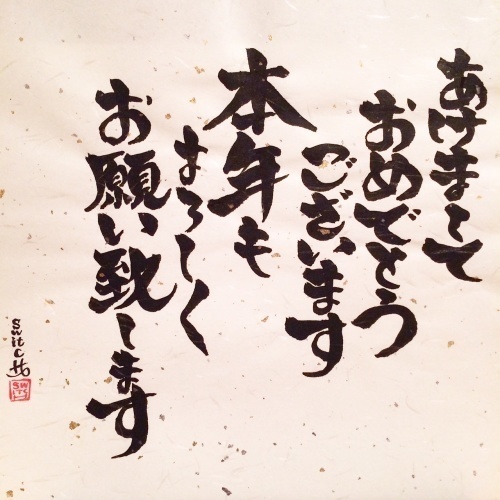 あけまして
おめでとう
ございます
本年も
よろしく
お願い致します
switch
SW
ITC
H